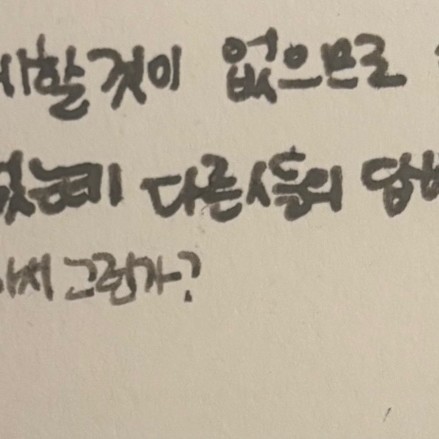 할것이 없으므로
는데 다른사들의 답
그런가?